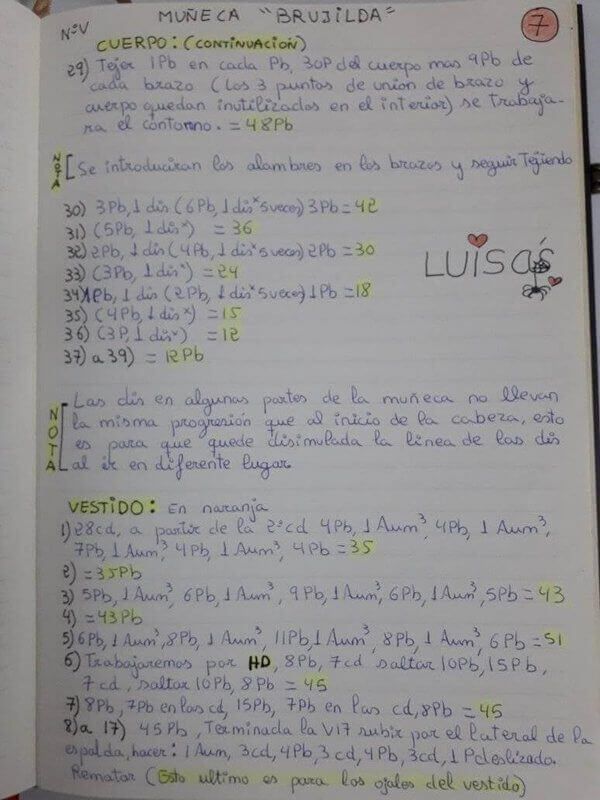 NºV MUÑECA "BRUJILDA" 7
CUERPO: (CONTINUACION)
29) Tejer 1Pb en cada Pb, 30P del cuerpo mas 9Pb de
cada brazo (Los 3 puntos de union de brazo y
cuerpo quedan inutilizados en el interior) se trabaja-
ra el contorno. = 48Pb
NOTA [Se introduciran los alambres en los brazos y seguir Tejiendo
30) 3Pb, 1 dis (6Pb, 1 disˣ 5 veces) 3Pb = 42
31) (5Pb, 1 disˣ) = 36
32) 2Pb, 1 dis (4Pb, 1 disˣ 5 veces) 2Pb = 30
33) (3Pb, 1 disˣ) = 24
34) 1Pb, 1 dis (2Pb, 1 disˣ 5 veces) 1Pb = 18
35) (4Pb, 1 disˣ) = 15
36) (3P, 1 disˣ) = 12
37) a 39) = 12Pb
LUISA'S
NOTA [Las dis en algunas partes de la muñeca no llevan
la misma progresión que al inicio de la cabeza, esto
es para que quede disimulada la linea de las dis
al ir en diferente lugar.
VESTIDO: En naranja
1) 28cd, a partir de la 2ªcd 4Pb, 1 Aum³, 4Pb, 1 Aum³,
7Pb, 1 Aum³, 4Pb, 1 Aum³, 4Pb = 35
2) = 35Pb
3) 5Pb, 1 Aum³, 6Pb, 1 Aum³, 9Pb, 1 Aum³, 6Pb, 1 Aum³, 5Pb = 43
4) = 43Pb
5) 6Pb, 1 Aum³, 8Pb, 1 Aum³, 11Pb, 1 Aum³, 8Pb, 1 Aum³, 6Pb = 51
6) Trabajaremos por HD, 8Pb, 7cd saltar 10Pb, 15Pb,
7cd, saltar 10Pb, 8Pb = 45
7) 8Pb, 7Pb en las cd, 15Pb, 7Pb en las cd, 8Pb = 45
8) a 17) 45Pb, Terminada la V17 subir por el lateral de la
espalda, hacer: 1 Aum, 3cd, 4Pb, 3cd, 4Pb, 3cd, 1 P.deslizado.
Rematar (Esto ultimo es para los ojales del vestido)